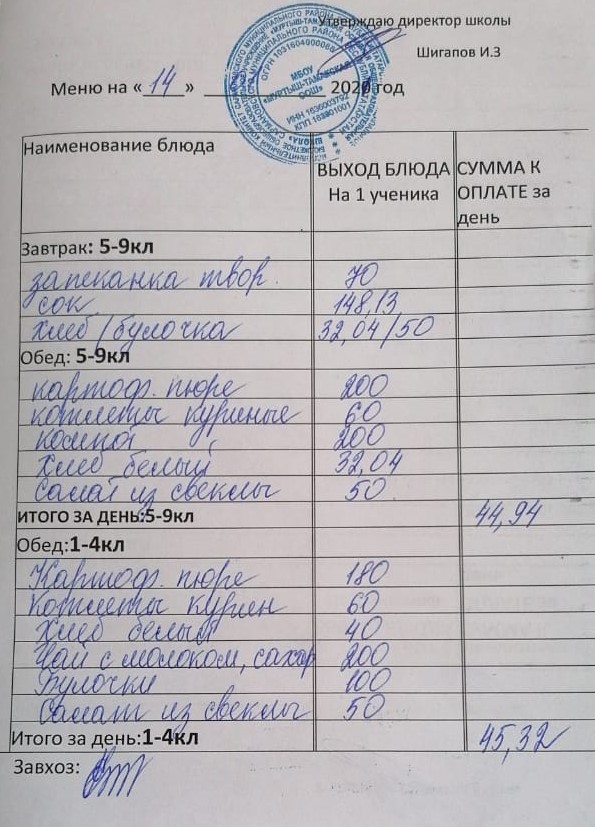 Утверждаю директор школы
Шигапов И.З
Меню на «14» год
МБОУ
«МУРТЫШ-ТАМАКСКАЯ
ООШ»
Наименование блюда
ВЫХОД БЛЮДА На 1 ученика
СУММА К ОПЛАТЕ за день
Завтрак: 5-9кл
запеканка твор. 70
сок 148,13
хлеб/булочка 32,04/50
Обед: 5-9кл
картоф. пюре 200
котлеты куриные 60
компот 200
Хлеб белый 32,04
Салат из свеклы 50
ИТОГО ЗА ДЕНЬ:5-9кл 44,94
Обед:1-4кл
Картоф. пюре 180
Котлеты курин 60
Хлеб белый 40
Чай с молоком, сахар 200
Булочки 100
Салат из свеклы 50
Итого за день:1-4кл 45,32
Завхоз: